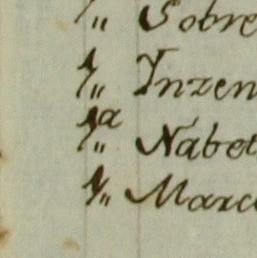 1,, Sobre
1,, Ynzen
1a,, Nabe
1,, Marc